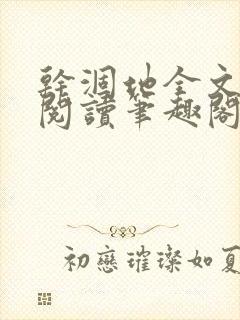 幹涸地全文
閱讀筆趣閣
初戀璀璨如夏